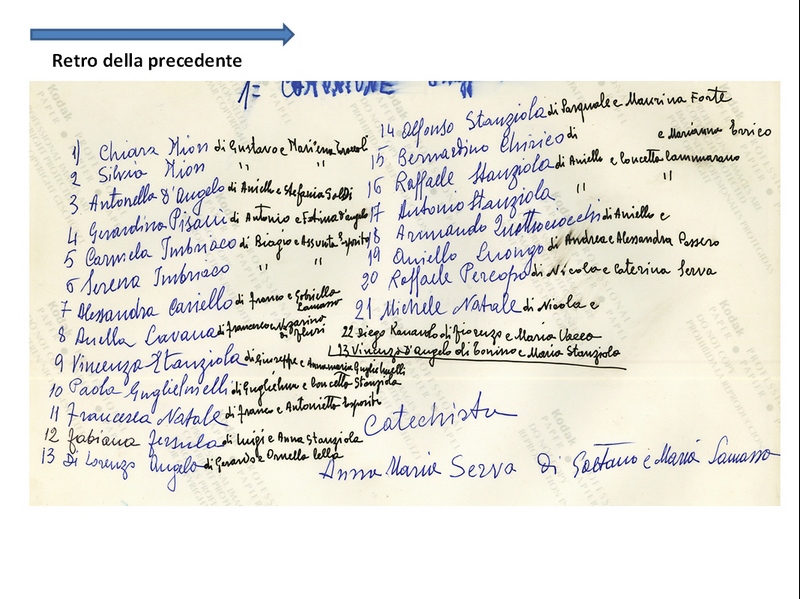 Retro della precedente
1= COMUNIONE
1) Chiara Mion di Gustavo e
2 Silvia Mion " "
3 Antonella D'Angelo di Aniello e Stefania Goldi
4 Gerardina Pisani di Antonio e Fatima d'angelo
5 Carmela Imbriaco di Biagio e Assunta Esposito
6 Serena Imbriaco " "
7 Alessandra Cariello di franco e Gabriella Samasso
8 Anella Cavana di francesco e
9 Vincenza Stanziola di Giuseppe e Annamaria Guglielmelli
10 Paola Guglielmelli di Guglielmo e Concetta Stanziola
11 Francesca Natale di franco e Antonietta Esposito
12 fabiana fersula di Luigi e Anna Stanziola
13 Di Lorenzo Angelo di Gerardo e Ornella Lella
14 Alfonso Stanziola di Pasquale e Maurina Forte
15 Bernardino Chirico di e Marianna Errico
16 Raffaele Stanziola di Aniello e Concetta Cammarano
17 Antonio Stanziola " "
18 Armando Quattrocchi di Aniello e
19 Aniello Luongo di Andrea e Alessandra Passero
20 Raffaele Percopo di Nicola e Caterina Serva
21 Michele Natale di Nicola e
22 Diego Ranaldo di fiorenzo e Maria Vacca
23 Vincenzo D'angelo di Tonino e Maria Stanziola
Catechista
Anna Maria Serva di Gaetano e Maria Samasso